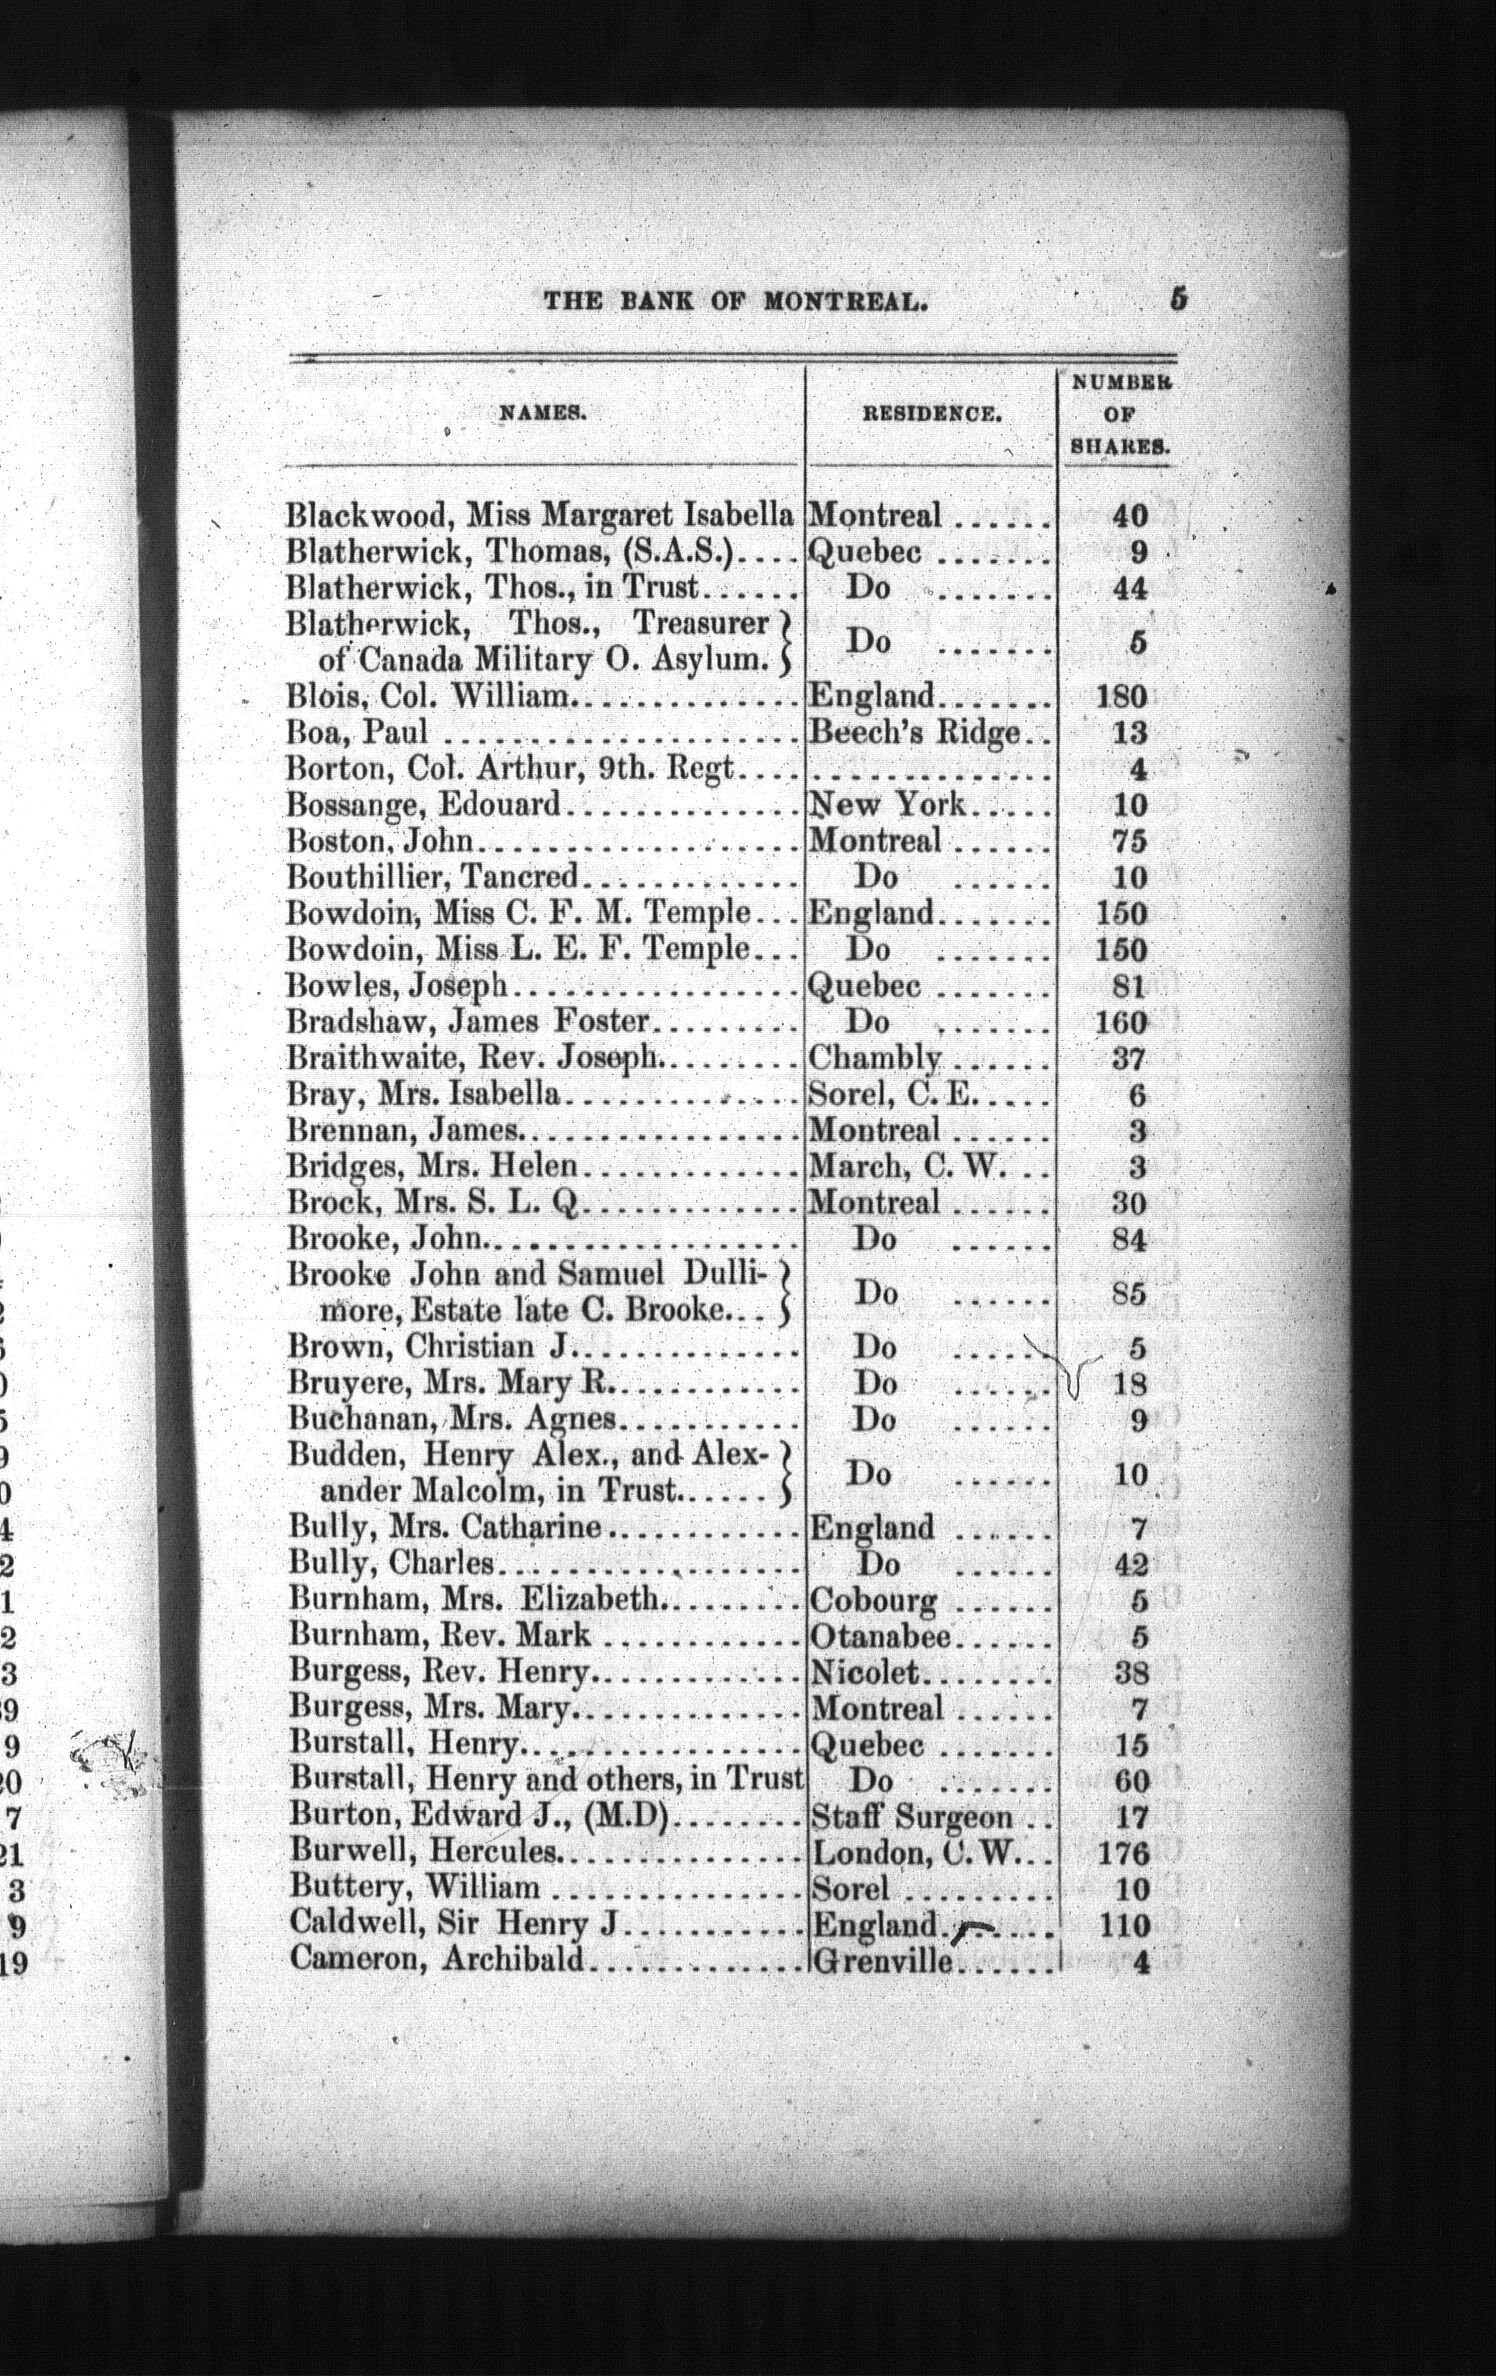 THE BANK OF MONTREAL. 5
NAMES. RESIDENCE. NUMBER OF SHARES.
Blackwood, Miss Margaret Isabella Montreal ...... 40
Blatherwick, Thomas, (S.A.S.).... Quebec ....... 9
Blatherwick, Thos., in Trust...... Do ....... 44
Blatherwick, Thos., Treasurer
of Canada Military O. Asylum. } Do ....... 5
Blois, Col. William.............. England....... 180
Boa, Paul .................... Beech's Ridge.. 13
Borton, Col. Arthur, 9th. Regt.... .............. 4
Bossange, Edouard............. New York..... 10
Boston, John.................. Montreal ...... 75
Bouthillier, Tancred............ Do ...... 10
Bowdoin, Miss C. F. M. Temple... England....... 150
Bowdoin, Miss L. E. F. Temple... Do ....... 150
Bowles, Joseph................ Quebec ....... 81
Bradshaw, James Foster......... Do ....... 160
Braithwaite, Rev. Joseph......... Chambly ...... 37
Bray, Mrs. Isabella............. Sorel, C. E..... 6
Brennan, James................ Montreal ...... 3
Bridges, Mrs. Helen............ March, C. W. .. 3
Brock, Mrs. S. L. Q............ Montreal ...... 30
Brooke, John.................. Do ...... 84
Brooke John and Samuel Dulli-
more, Estate late C. Brooke... } Do ...... 85
Brown, Christian J............. Do ...... 5
Bruyere, Mrs. Mary R........... Do ...... 18
Buchanan, Mrs. Agnes.......... Do ...... 9
Budden, Henry Alex., and Alex-
ander Malcolm, in Trust...... } Do ...... 10
Bully, Mrs. Catharine........... England ...... 7
Bully, Charles................. Do ...... 42
Burnham, Mrs. Elizabeth........ Cobourg ...... 5
Burnham, Rev. Mark ........... Otanabee...... 5
Burgess, Rev. Henry............ Nicolet........ 38
Burgess, Mrs. Mary............. Montreal ...... 7
Burstall, Henry................ Quebec ....... 15
Burstall, Henry and others, in Trust Do ....... 60
Burton, Edward J., (M.D)........ Staff Surgeon .. 17
Burwell, Hercules.............. London, C. W... 176
Buttery, William .............. Sorel ......... 10
Caldwell, Sir Henry J.......... England....... 110
Cameron, Archibald............ Grenville...... 4